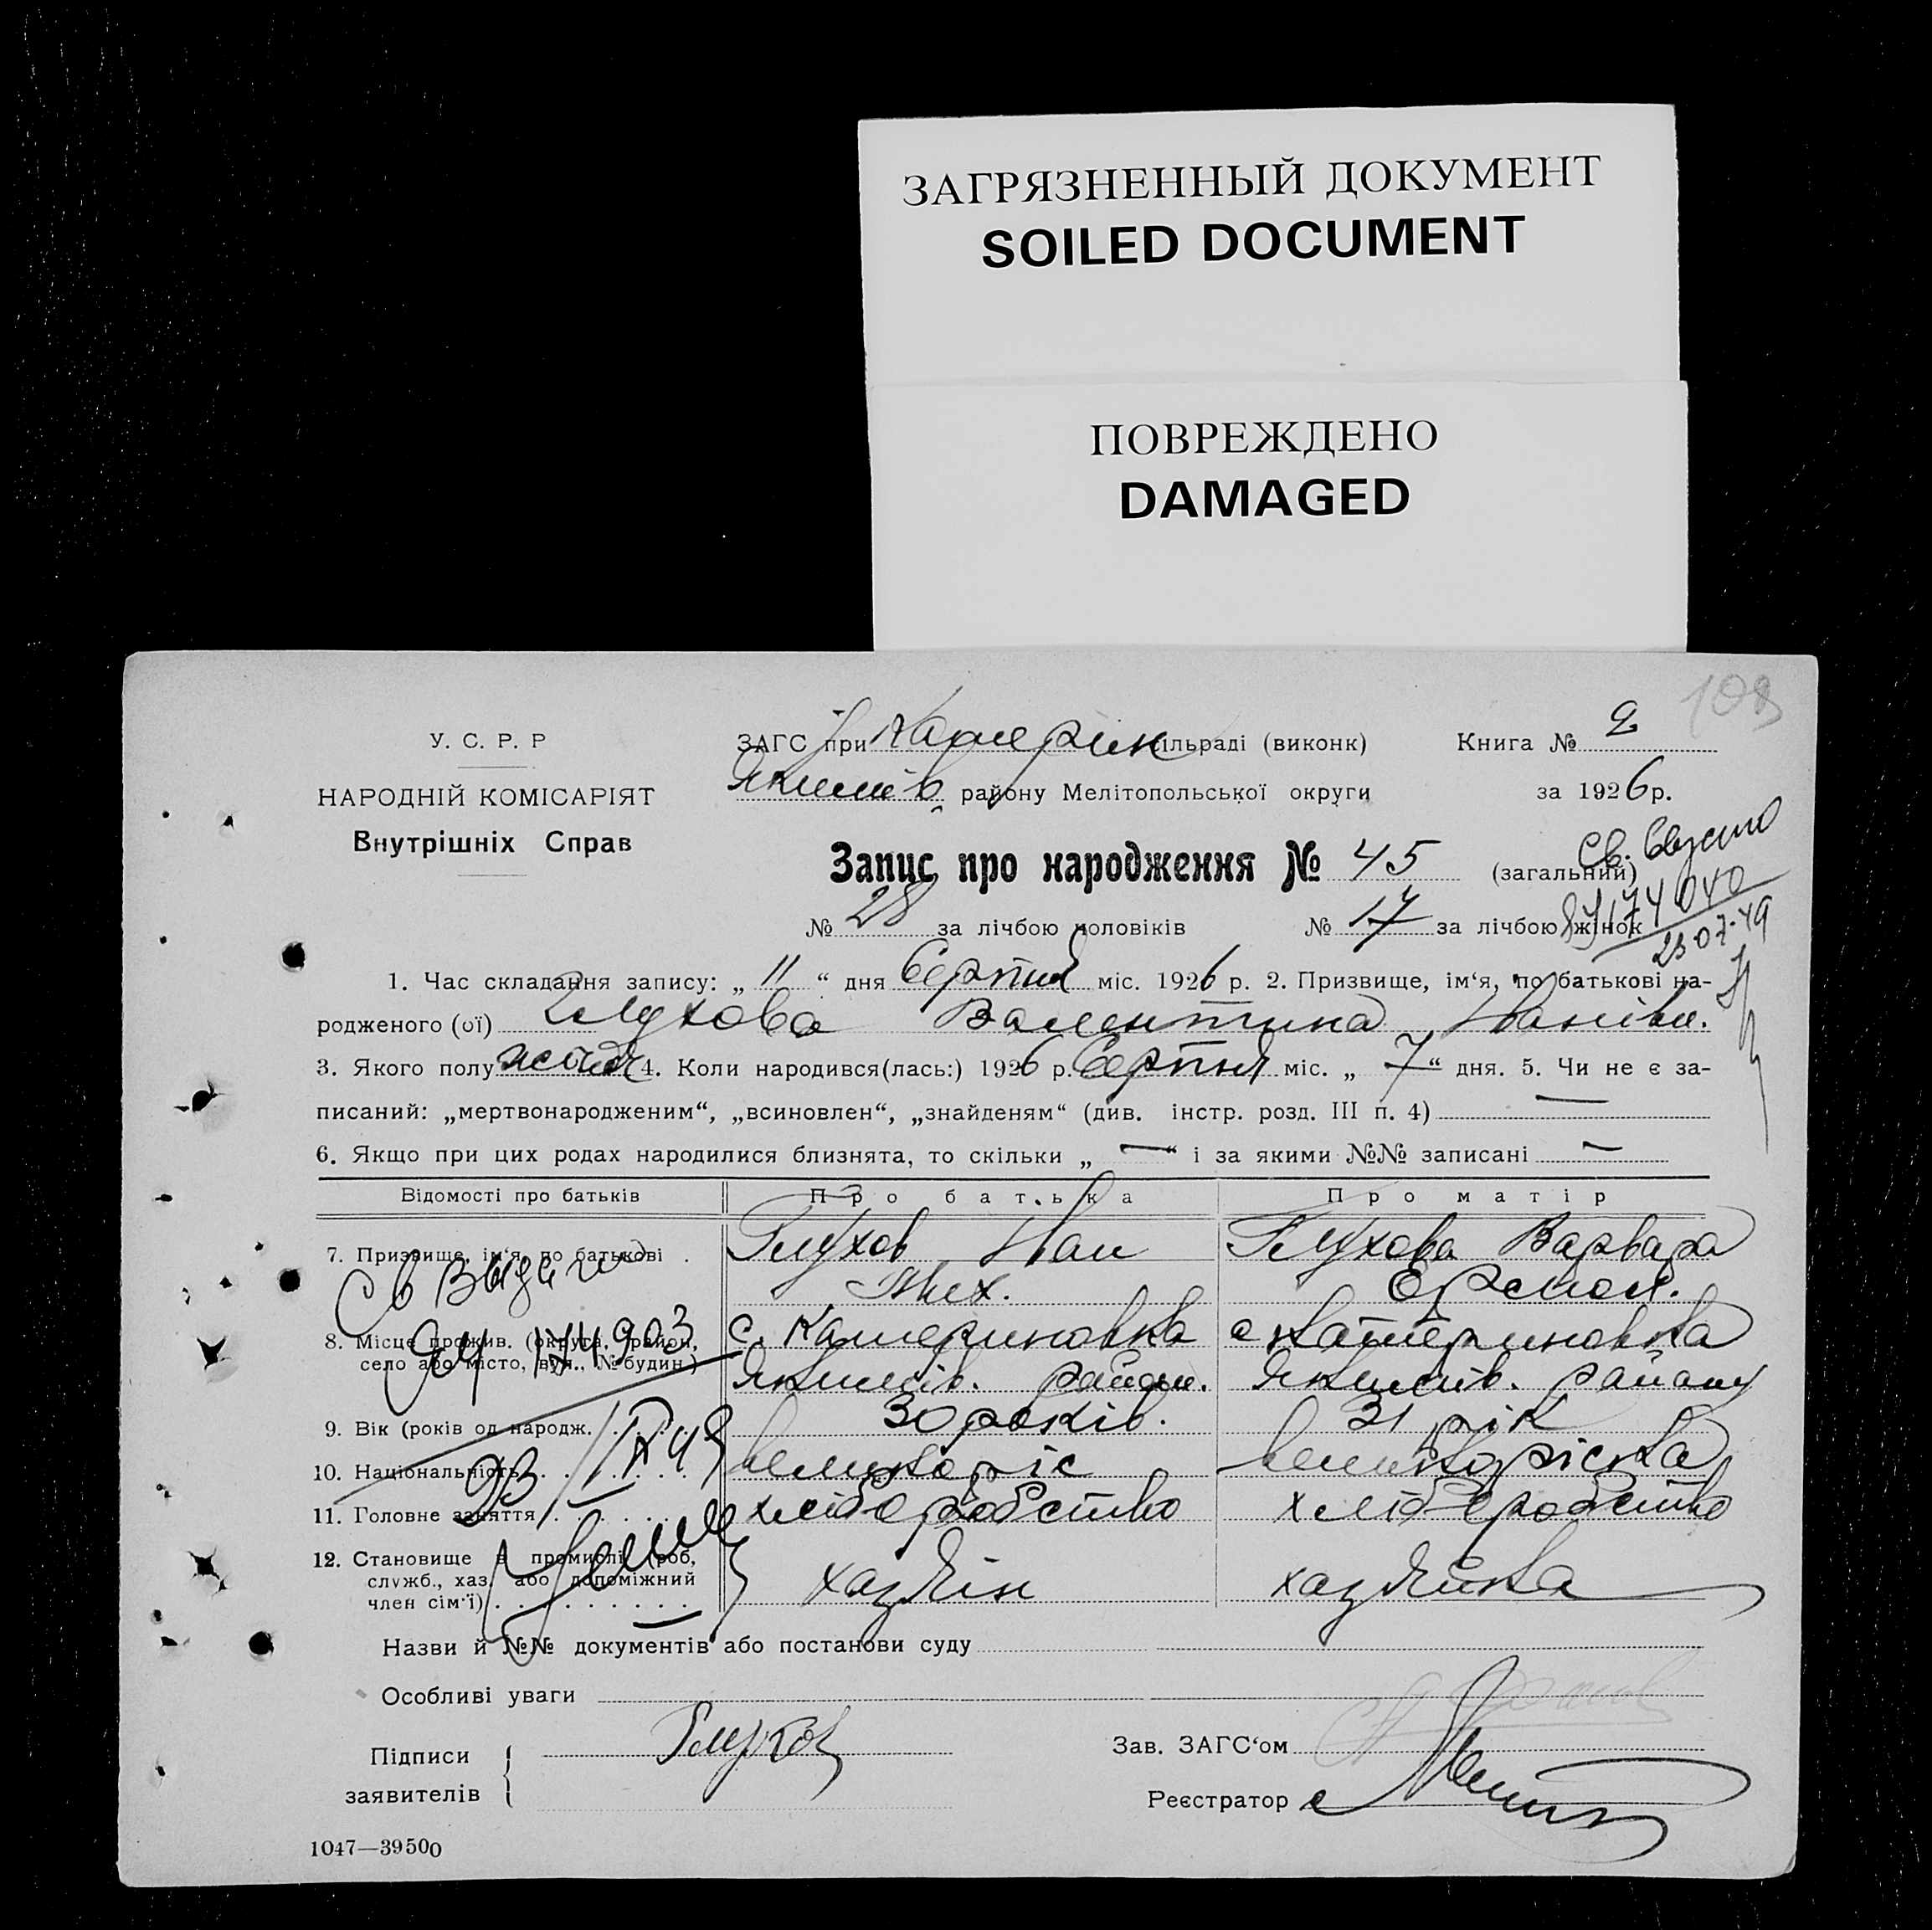 ЗАГРЯЗНЕННЫЙ ДОКУМЕНТ
SOILED DOCUMENT
ПОВРЕЖДЕНО
DAMAGED
109
У. С. Р. Р
НАРОДНІЙ КОМІСАРІЯТ
Внутрішніх Справ
ЗАГС при Катерин сільраді (виконк) Книга № 2
Якимів району Мелітопольської округи за 1926 р.
Запис про народження № 45 (загальний)
№ 28 за лічбою чоловіків № 17 за лічбою жінок
23.07.49
1. Час складання запису: „ 11 “ дня Серпня міс. 1926 р. 2. Призвище, ім‘я, по батькові на-
родженого (ої) Глухова Валентина Иванівн.
3. Якого полу жіноч 4. Коли народився(лась:) 1926 р. Серпня міс. „ 7 “ дня. 5. Чи не є за-
писаний: „мертвонародженим“, „всиновлен“, „знайденям“ (див. інстр. розд. III п. 4) —
6. Якщо при цих родах народилися близнята, то скільки „ — “ і за якими №№ записані —
Відомості про батьків Про батька Про матір
7. Призвище, ім‘я, по батькові . Глухов Иван Глухова Варвара
Мих. Ермол.
8. Місце прожив. (округа, район, с. Катериновка с Катериновка
село або місто, вул., № будин.) Якимів. район. Якимів. району
9. Вік (років од народж. 30 років. 31 рік
10. Національність великоріс великоріска
11. Головне заняття хліборобство хліборобство
12. Становище в промислі (роб,
служб., хаз. або допоміжний хазяїн хазяйка
член сім‘ї)
Назви й №№ документів або постанови суду
Особливі уваги
Підписи Глухов Зав. ЗАГС‘ом
заявителів Реєстратор
1047—39500